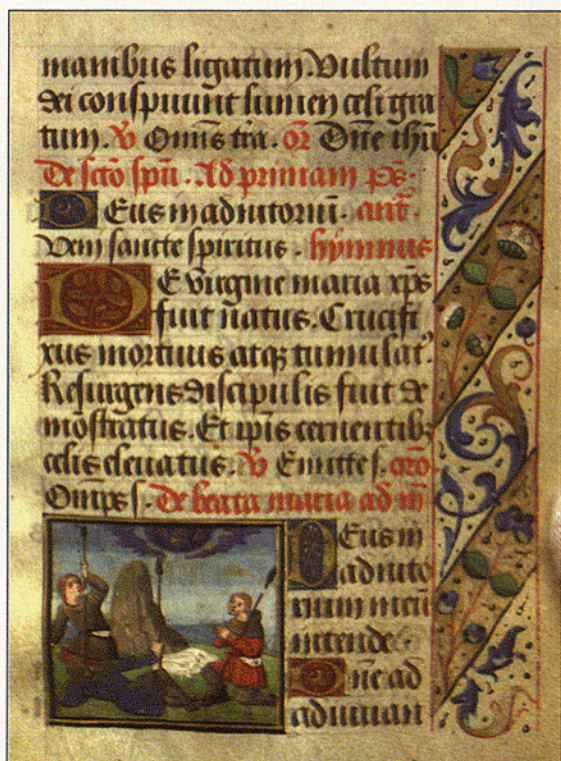 manibus ligatum. Vultum
dei conspuunt lumen celi gra
tum. ꝟ Om̄is tr̄a. or̄ Dn̄e ih̄u
De sc̄to sp̄u. Ad primam ps̄.
Deus in adiutoriū. ant̄.
Veni sancte spiritus. hymnus
De virgine maria xp̄s
fuit natus. Crucifi
xus mortuus atqꝫ tumulat᷒.
Resurgens discipulis fuit de
mōstratus. Et ip̄is cernentibꝫ
celis eleuatus. ꝟ Emitte s. oro.
Om̄ps s. De beata maria ad
Deus in
adiuto
rium meū
intende.
Dn̄e ad
adiuuan